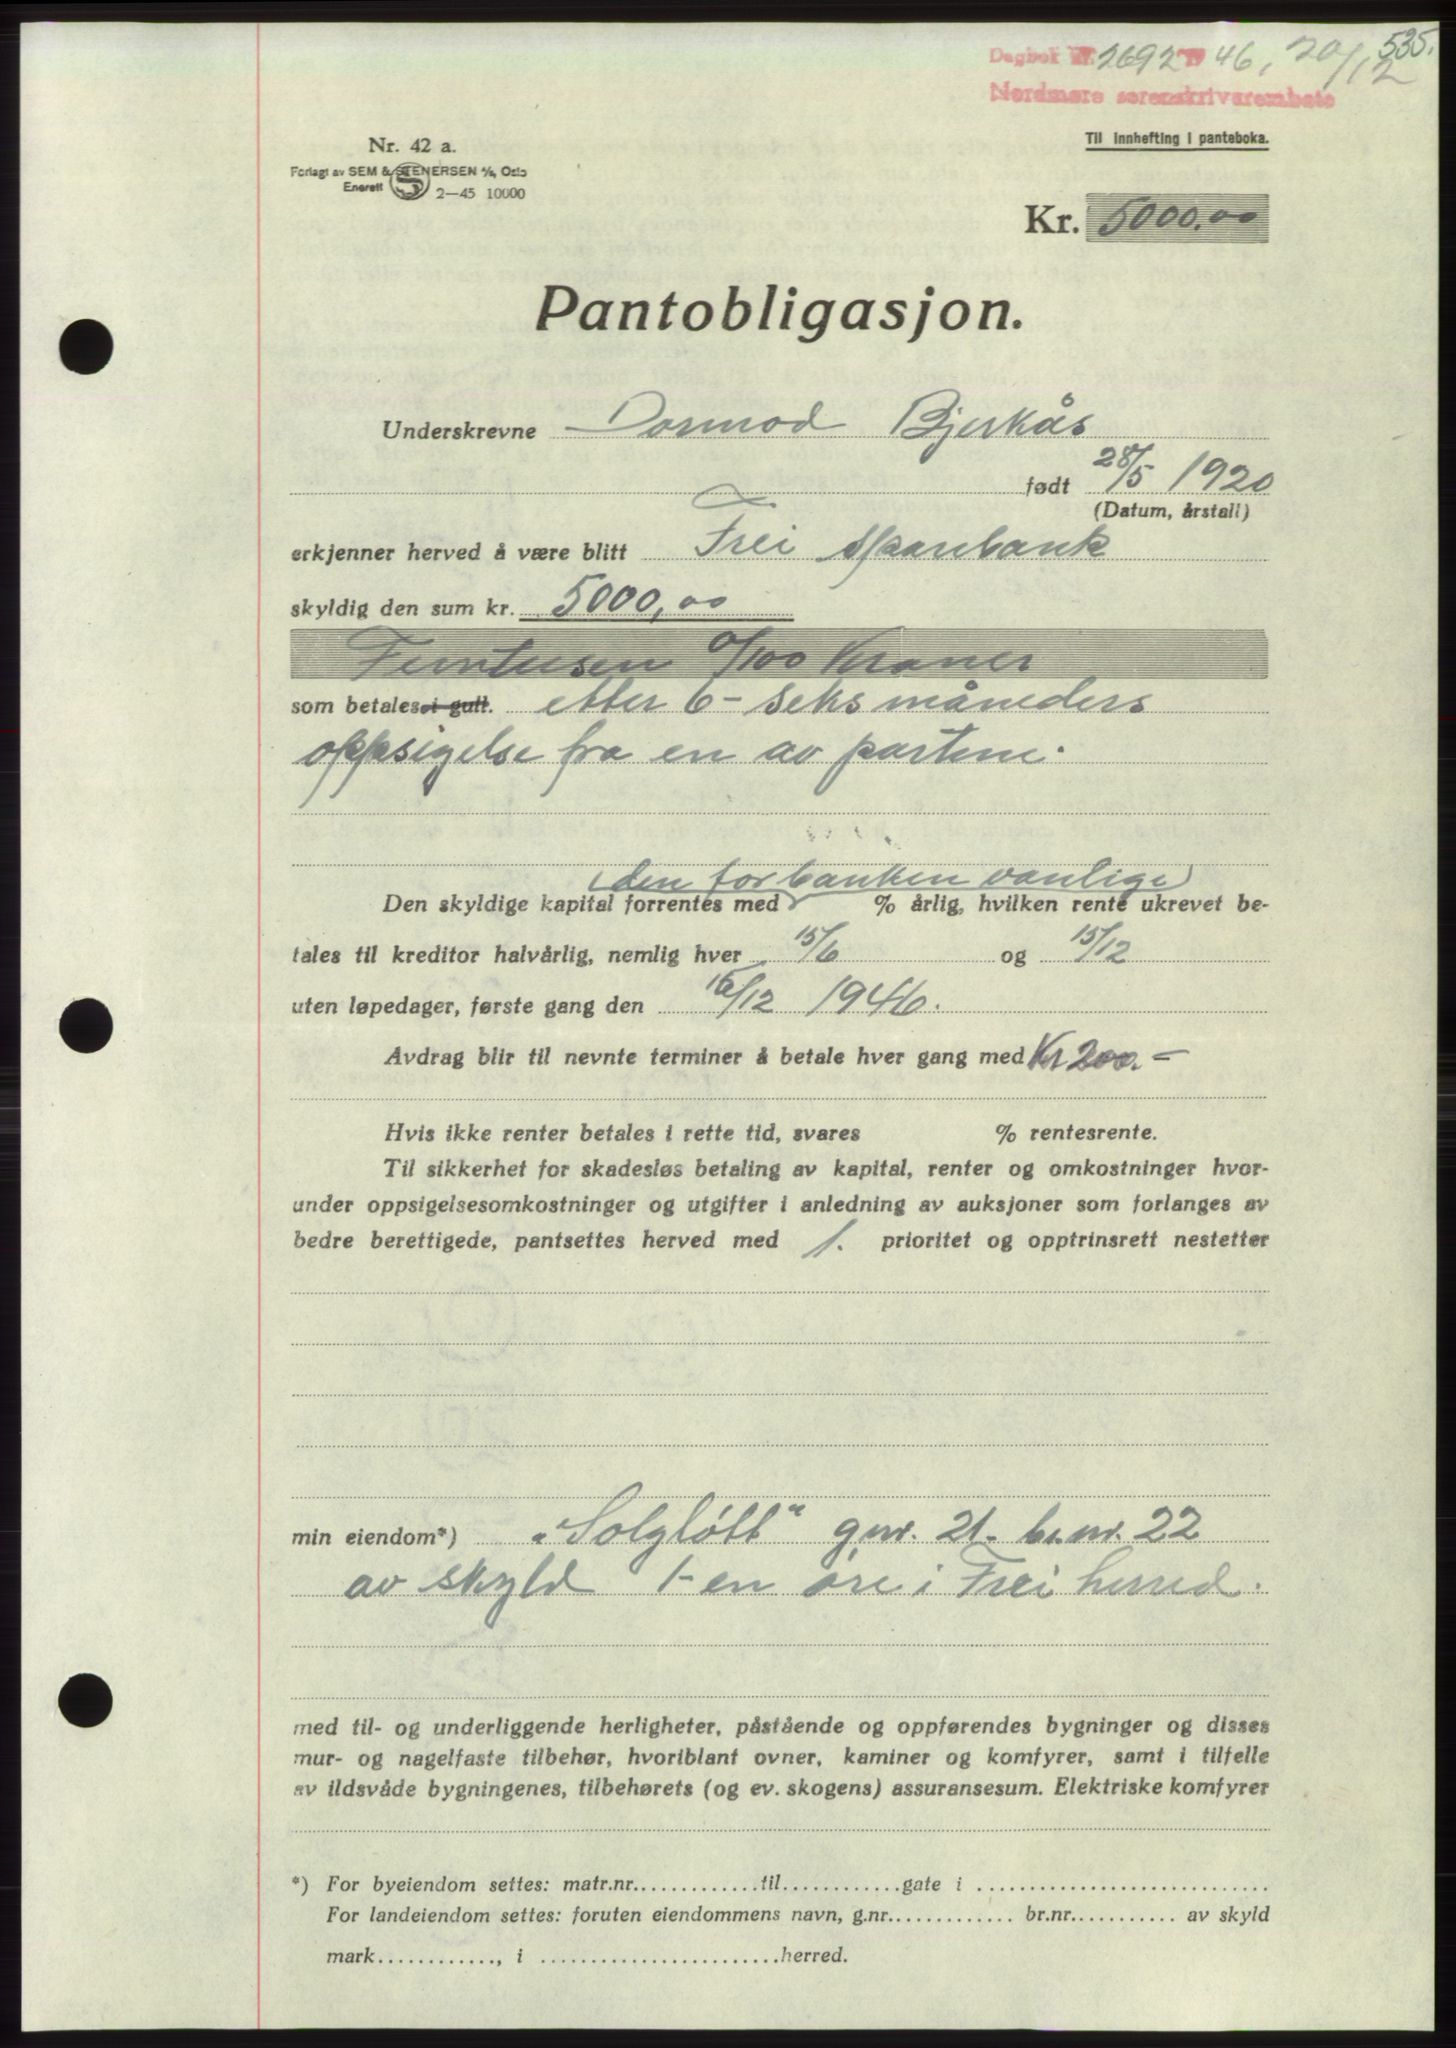 535.
Dagbok nr. 2692 19 46, 20/12
Nordmøre sorenskriverembete
Nr. 42 a.
Til innhefting i panteboka.
Forlagt av SEM & STENERSEN A/S, Oslo
Enerett
2—45 10000
Kr. 5000.00
Pantobligasjon.
Underskrevne Dormod Bjerkås
født 28/5 1920
(Datum, årstall)
erkjenner herved å være blitt Frei Sparebank
skyldig den sum kr. 5000,00
Femtusen 0/100 Kroner
som betales i gull. etter 6 - seks måneders
oppsigelse fra en av partene.
(den for banken vanlige)
Den skyldige kapital forrentes med % årlig, hvilken rente ukrevet be-
tales til kreditor halvårlig, nemlig hver 15/6 og 15/12
uten løpedager, første gang den 15/12 1946.
Avdrag blir til nevnte terminer å betale hver gang med Kr 200.-
Hvis ikke renter betales i rette tid, svares % rentesrente.
Til sikkerhet for skadesløs betaling av kapital, renter og omkostninger hvor-
under oppsigelsesomkostninger og utgifter i anledning av auksjoner som forlanges av
bedre berettigede, pantsettes herved med 1. prioritet og opptrinsrett nestetter
min eiendom*) „Solgløtt“ g.nr. 21. br.nr. 22
av skyld 1 - en øre i Frei herred.
med til- og underliggende herligheter, påstående og oppførendes bygninger og disses
mur- og nagelfaste tilbehør, hvoriblant ovner, kaminer og komfyrer, samt i tilfelle
av ildsvåde bygningenes, tilbehørets (og ev. skogens) assuransesum. Elektriske komfyrer
*) For byeiendom settes: matr.nr.............til.............gate i .............................
For landeiendom settes: foruten eiendommens navn, g.nr............. br.nr........... av skyld
mark............, i ........................herred.